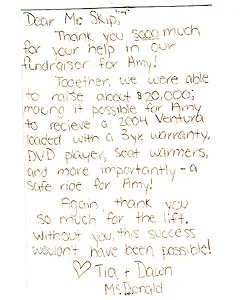 Dear Mr. Skip,
Thank you sooo much
for your help in our
fundraiser for Amy!
Together, we were able
to raise about $20,000;
making it possible for Amy
to recieve a 2004 Ventura
loaded with a 3yr. warranty,
DVD player, seat warmers,
and more importantly - a
safe ride for Amy!
Again, thank you
so much for the lift.
Without you, this success
wouldn't have been possible!
♡ Tia + Dawn
McDonald